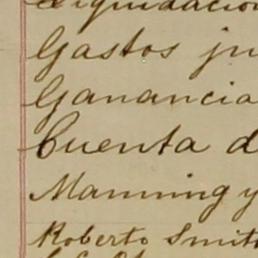 Liquidacion
Gastos ju
Ganancia
Cuenta d
Manning y
Roberto Smit